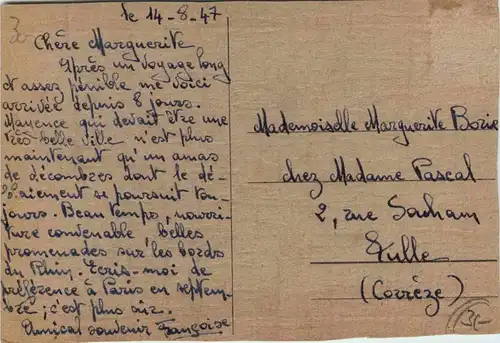 le 14-8-47
Chère Marguerite
Après un voyage long
et assez pénible me voici
arrivée depuis 8 jours.
Mayence qui devait être une
très belle ville n'est plus
maintenant qu'un amas
de décombres dont le dé-
blaiement se poursuit tou-
jours. Beau temps, nourri-
ture convenable, belles
promenades sur les bords
du Rhin. Ecris-moi de
préférence à Paris en septem-
bre ; c'est plus sûr.
Amical souvenir Françoise
Mademoiselle Marguerite Borie
chez Madame Pascal
2, rue Souham
Tulle
(Corrèze)